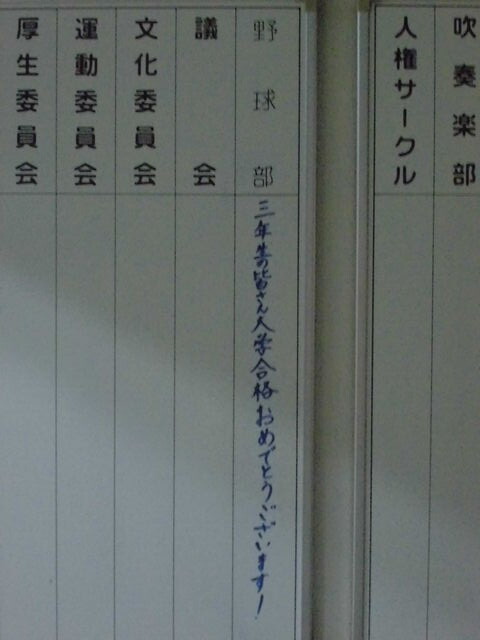 吹奏楽部
人権サークル
野球部
三年生の皆さん大学合格おめでとうございます!
議会
文化委員会
運動委員会
厚生委員会